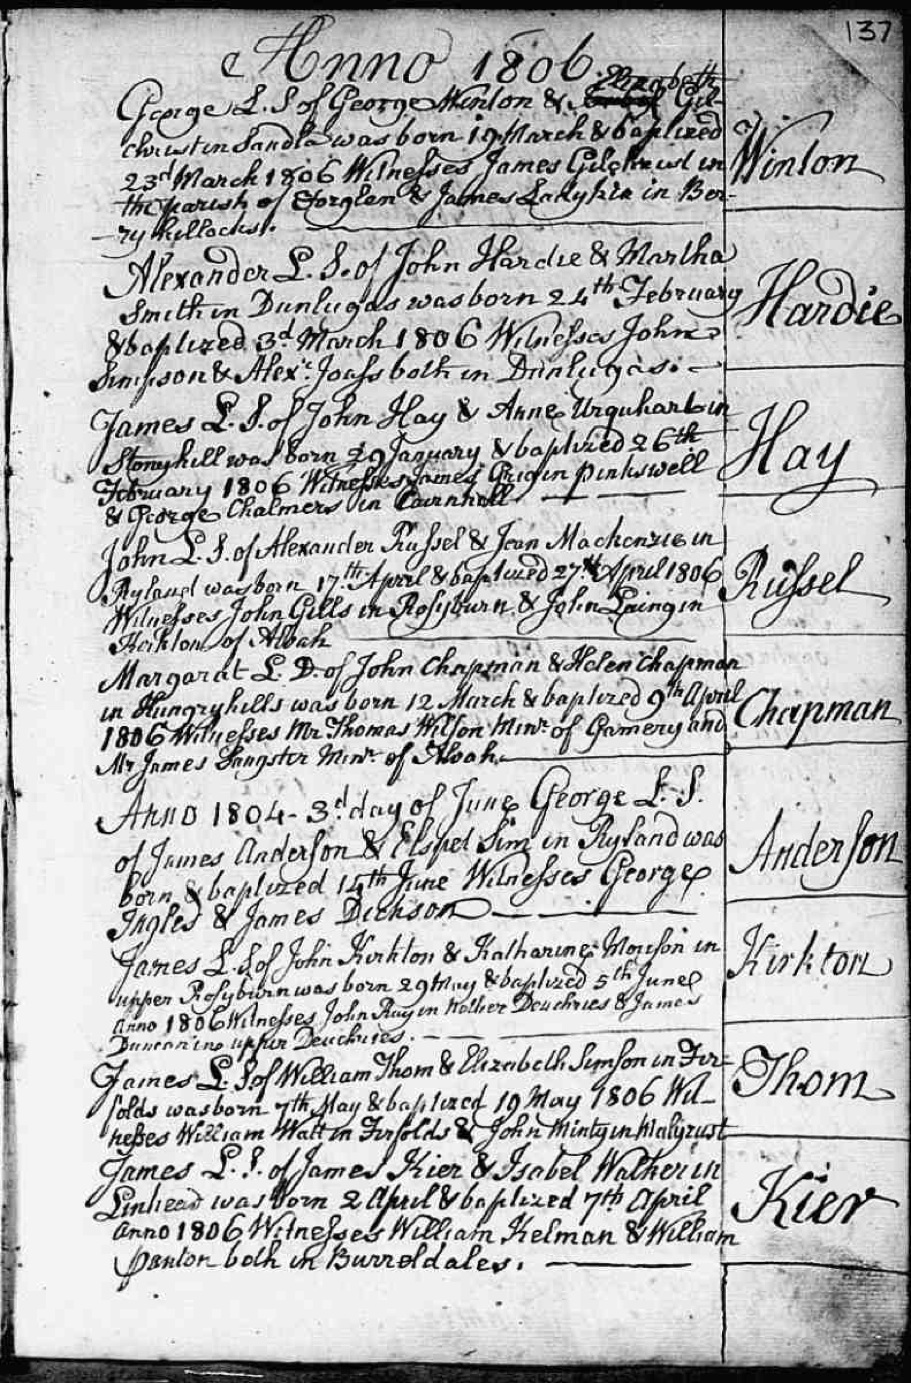 137
Anno 1806.
Elizabeth
George L. S of George Winton & Gil-
christ in Sandla was born 19 March & baptized
23d March 1806 Witnesses James Gilchrist in
the parish of Forglen & James in Ber-
ry hillocks.
Winton
Alexander L. S. of John Hardie & Martha
Smith in Dunlugas was born 24th February
& baptized 3d March 1806 Witnesses John
Simpson & Alexr. Joass both in Dunlugas.
Hardie
James L. S. of John Hay & Anne Urquhart in
Stonyhill was born 29 January & baptized 26th
February 1806 Witnesses James Grig in pinkswell
& George Chalmers in Cairnhill
Hay
John L. S. of Alexander Russel & Jean Mackenzie in
Ryland was born 17th April & baptized 27th April 1806
Witnesses John Gills in Rosyburn & John Laing in
Kirkton of Alvah
Russel
Margarat L. D. of John Chapman & Helen Chapman
in Hungryhills was born 12 March & baptized 9th April
1806 Witnesses Mr Thomas Wilson Minr. of Gamery and
Mr James Sangster Minr. of Alvah.
Chapman
Anno 1804 - 3d day of June George L. S.
of James Anderson & Elspet Sim in Ryland was
born & baptized 14th June Witnesses George
Ingles & James Dickson
Anderson
James L. S of John Kirkton & Katharine Morison in
upper Rosyburn was born 29 May & baptized 5th June
anno 1806 Witnesses John Ray in Nether Deuchries & James
Duncan in upper Deuchries.
Kirkton
James L. S of William Thom & Elizabeth Simson in Fir-
folds was born 7th May & baptized 19 May 1806 Wit-
nesses William Watt in Firfolds & John Minty in
Thom
James L. S. of James Kier & Isabel Walker in
Linhead was born 2 April & baptized 7th April
anno 1806 Witnesses William Kelman & William
panton both in Burreldales.
Kier